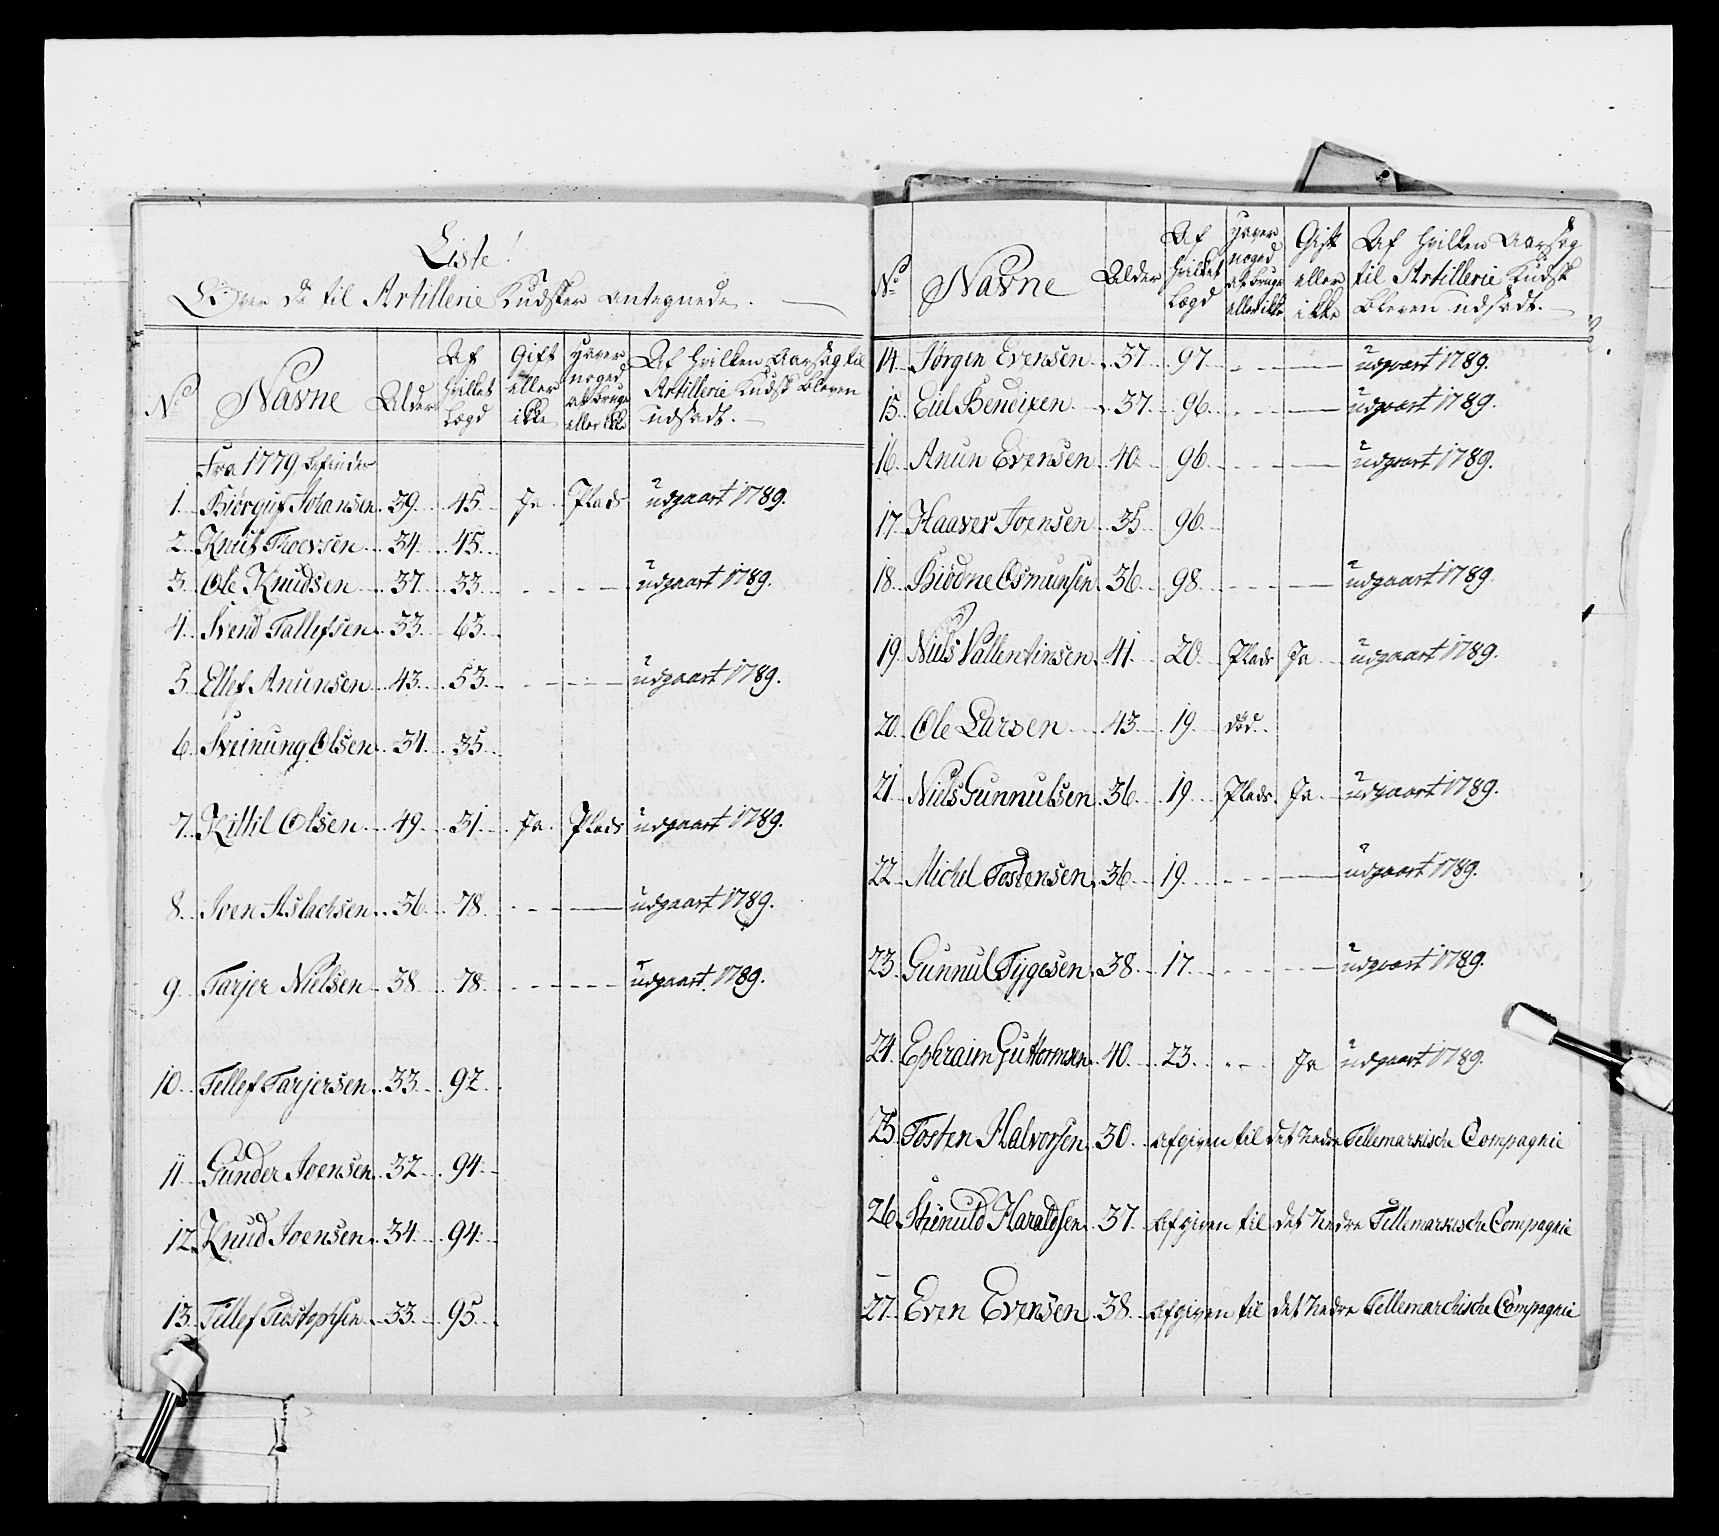 Liste!
Over de til Artillerie Kudsker antegnede.
No Navne Alder Af hvilket Lægd Gift eller ikke Haver noget at bruge eller ikke Af hvilken Aarsag til Artillerie Kudsk bleven udsadt.
Fra 1779 befindes
1. Johansen 39. 45. Ja. Plads udgaart 1789.
2. Knut 34. 45.
3. Ole Knudsen 37. 33. udgaart 1789.
4. Svend Tallefsen 33. 63.
5. Ellef Anunsen 43. 53. udgaart 1789.
6. Sveinung Olsen 34. 35.
7. Kittil Olsen 49. 31. Ja. Plads udgaart 1789.
8. Joen Aslachsen 36. 78. udgaart 1789.
9. Tarjer Nielsen 38. 78. udgaart 1789.
10. Tellef Tarjersen 33. 92.
11. Gunder Joensen 32. 94.
12. Knud Joensen 34. 94.
13. Tellef 33. 95.
No Navne Alder Af hvilket Lægd Haver noged at bruge eller ikke Gift eller ikke Af hvilken Aarsag til Artillerie Kudsk bleven udsadt.
14. Jørgen Evensen 37. 97. udgaart 1789.
15. Eiel Bendixen 37. 96. udgaart 1789.
16. Anun Evensen 40. 96. udgaart 1789.
17. Haaver Joensen 35. 96.
18. Biødne Osmunsen 36. 98. udgaart 1789.
19. Niels Vallentinsen 41. 20. Plads Ja udgaart 1789.
20. Ole Larsen 43. 19. død.
21. Niels Gunnulsen 36. 19. Plads. Ja. udgaart 1789.
22. Michel Tostensen 36. 19. udgaart 1789.
23. Gunnul Tygesen 38. 17. udgaart 1789.
24. Ephraim Guttormsen 40. 23. Ja udgaart 1789.
25. Tosten Halvorsen 30. afgiven til det Nedre Tellemarkische Compagnie
26. Haraldsen 37. afgiven til det Nedre Tellemarkische Compagnie
27. Even Evensen 38. afgiven til det Nedre Tellemarchische Compagnie